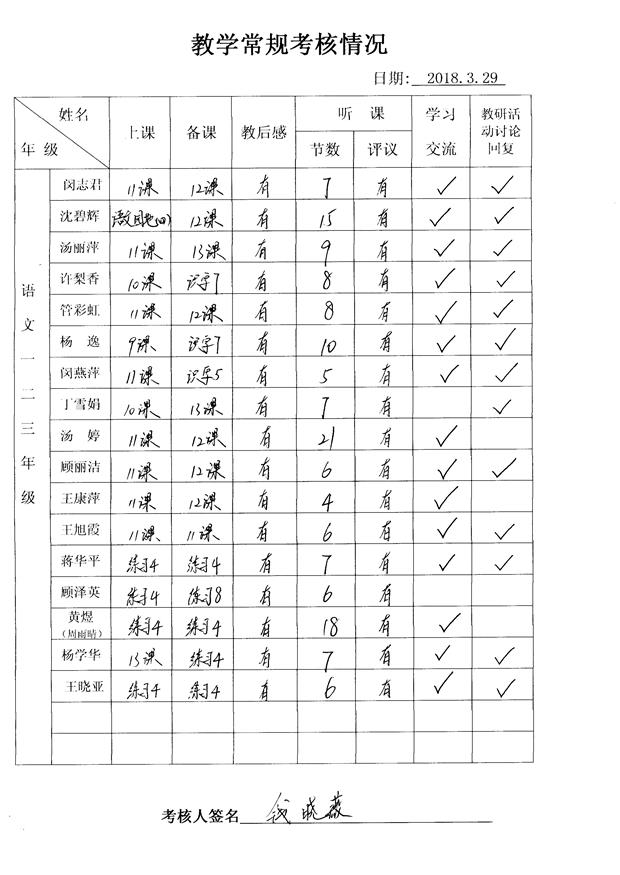 教学常规考核情况
日期: 2018.3.29
姓名 年级 上课 备课 教后感 听课 节数 评议 学习交流 教研活动讨论回复
语文一二三年级
闵志君 11课 12课 有 7 有 ✓ ✓
沈碧辉 语文园地(四) 12课 有 15 有 ✓ ✓
汤丽萍 11课 13课 有 9 有 ✓ ✓
许梨香 10课 识字7 有 8 有 ✓ ✓
管彩虹 11课 12课 有 8 有 ✓ ✓
杨逸 9课 识字7 有 10 有 ✓ ✓
闵燕萍 11课 识字5 有 5 有 ✓ ✓
丁雪娟 10课 13课 有 7 有 ✓
汤婷 11课 12课 有 21 有 ✓
顾丽洁 11课 12课 有 6 有 ✓ ✓
王康萍 11课 12课 有 4 有 ✓
王旭霞 11课 11课 有 6 有 ✓ ✓
蒋华平 练习4 练习4 有 7 有 ✓ ✓
顾泽英 练习4 练习8 有 6 有
黄煜 (周雨晴) 练习4 练习4 有 18 有 ✓
杨学华 13课 练习4 有 7 有 ✓ ✓
王晓亚 练习4 练习4 有 6 有 ✓ ✓
考核人签名 钱晓薇